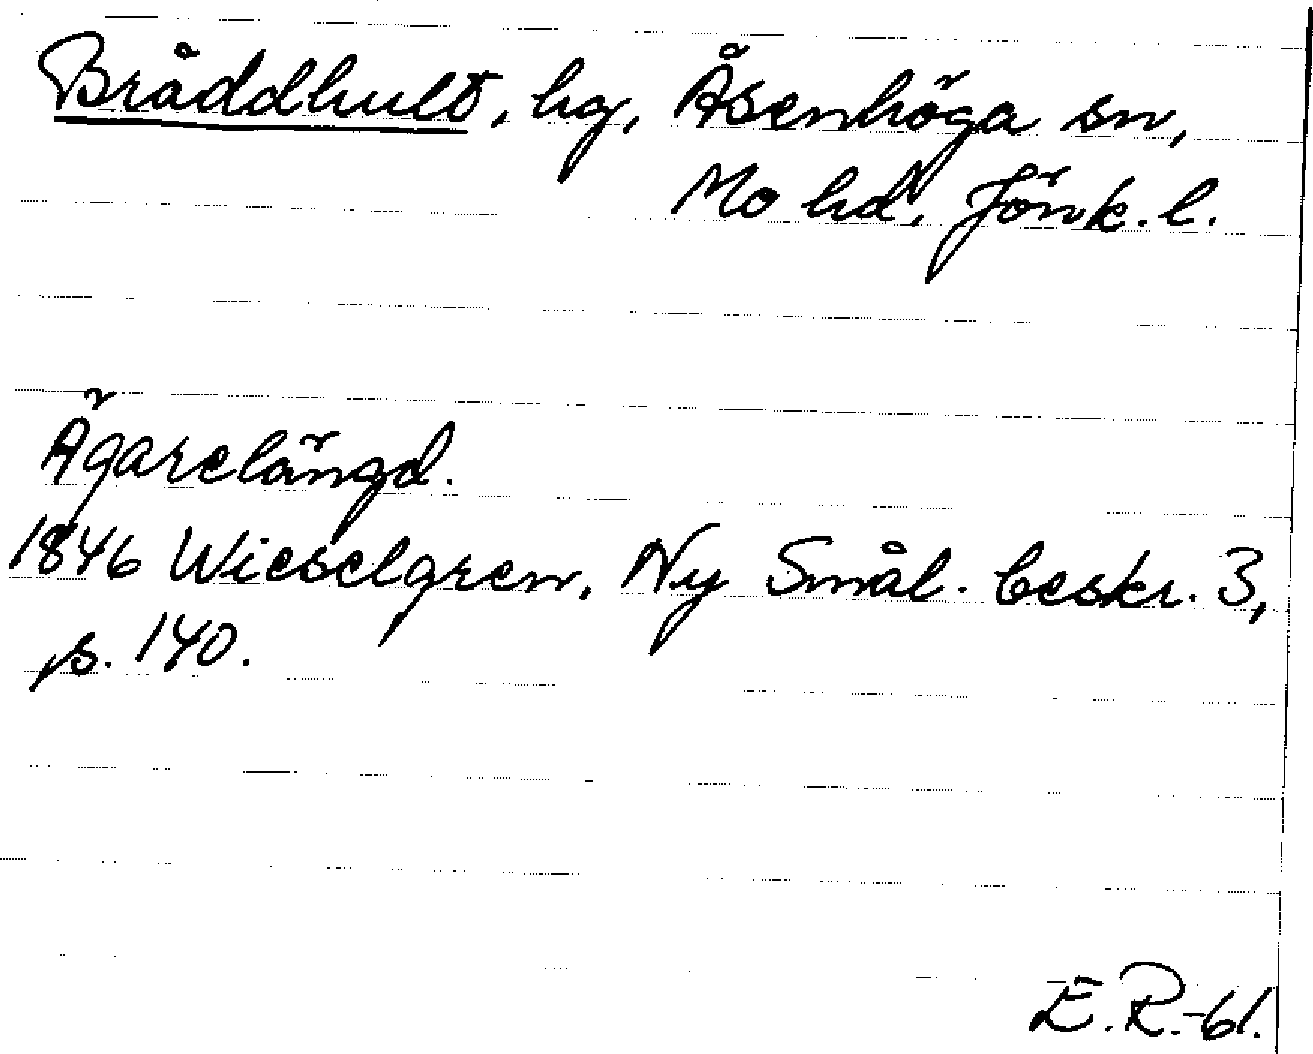 Bråddhult, hg, Åsenhöga sn,
Mo hd, Jönk. l.
Ägarelängd.
1846 Wieselgren, Ny Smål. beskr. 3,
s. 140.
E.R.-61.